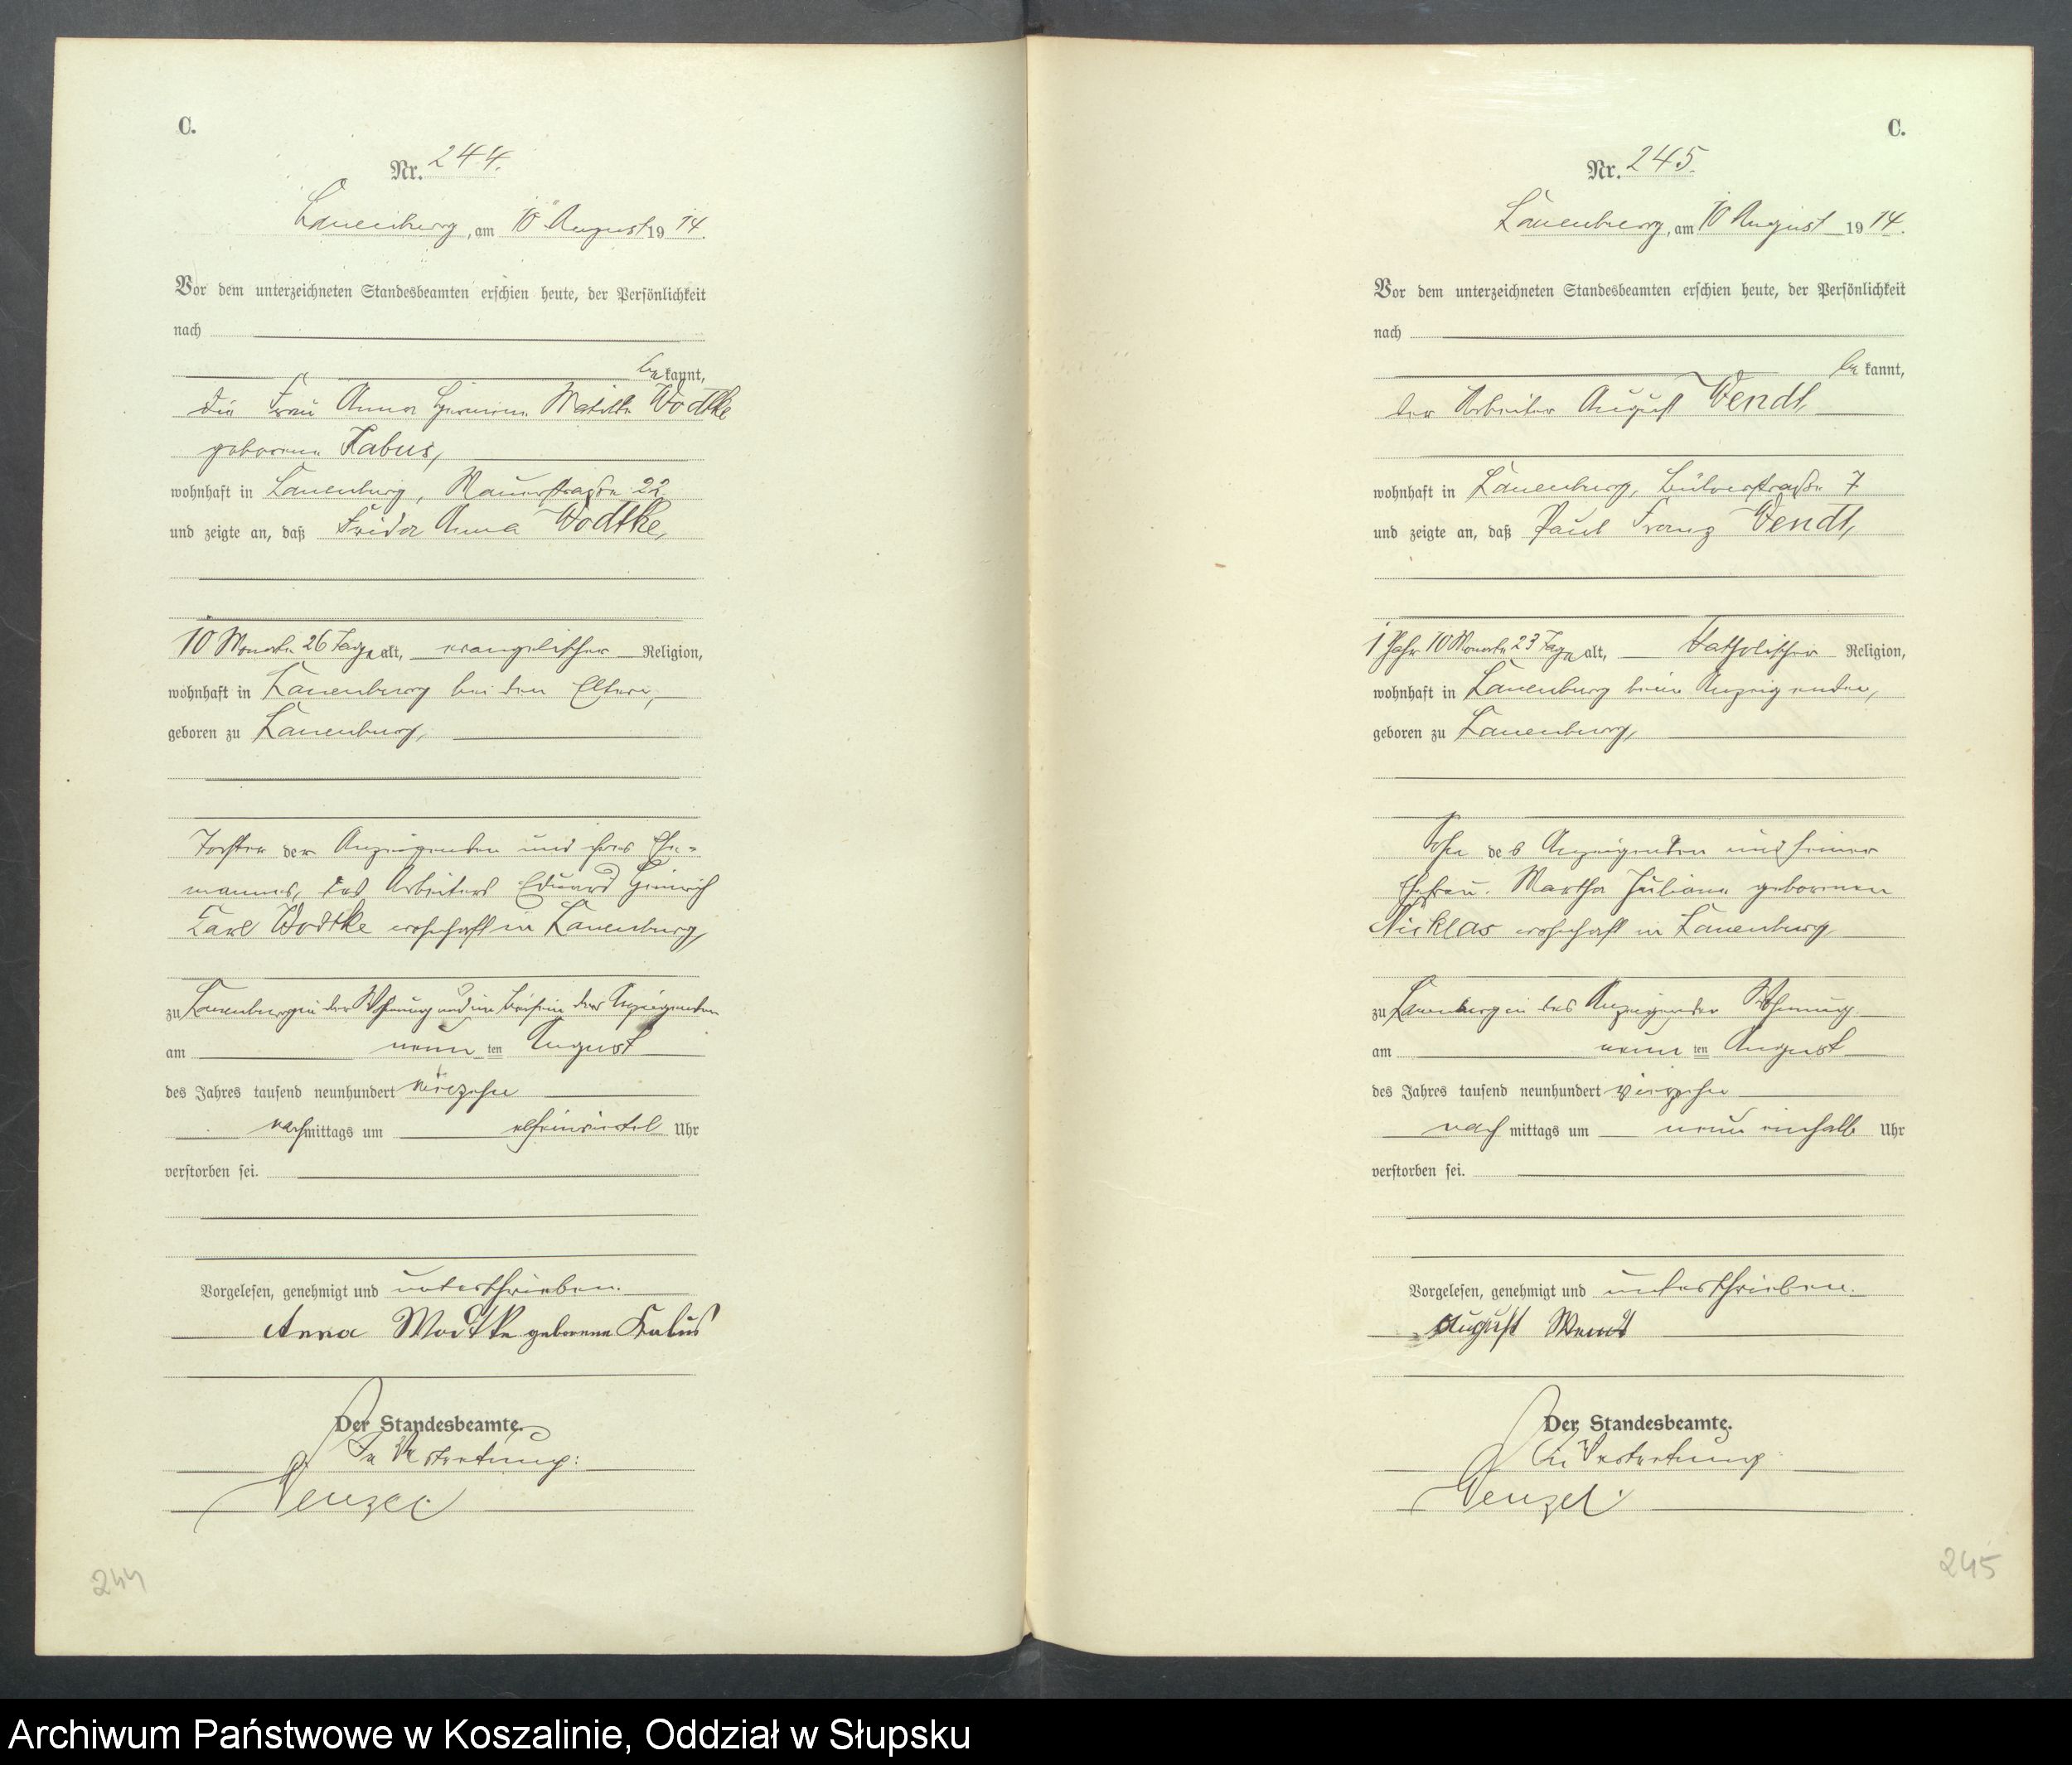 C.
Nr. 244.
Lauenburg, am 10 August 1914.
Vor dem unterzeichneten Standesbeamten erschien heute, der Persönlichkeit
nach
bekannt,
die Frau Anna Hermine Mathilde Wodtke
geborene Kabus,
wohnhaft in Lauenburg, Mauerstraße 22
und zeigte an, daß Frida Anna Wodtke,
10 Monate 26 Tage alt, evangelischer Religion,
wohnhaft in Lauenburg bei den Eltern,
geboren zu Lauenburg,
Tochter der Anzeigenden und ihres Ehe-
mannes, des Arbeiters Eduard Heinrich
Carl Wodtke wohnhaft in Lauenburg,
zu Lauenburg in der Wohnung und im Beisein der Anzeigenden
am neunten August
des Jahres tausend neunhundert vierzehn
nachmittags um elfeinviertel Uhr
verstorben sei.
Vorgelesen, genehmigt und unterschrieben.
Anna Wodtke geborene Kabus
Der Standesbeamte.
In Vertretung:
Wenzel
244
C.
Nr. 245.
Lauenburg, am 10 August 1914.
Vor dem unterzeichneten Standesbeamten erschien heute, der Persönlichkeit
nach
bekannt,
der Arbeiter August Wendt,
wohnhaft in Lauenburg, Bütowerstraße 7
und zeigte an, daß Paul Franz Wendt,
1 Jahr 10 Monate 23 Tage alt, katholischer Religion,
wohnhaft in Lauenburg beim Anzeigenden,
geboren zu Lauenburg,
Sohn des Anzeigenden und seiner
Ehefrau Martha Juliane geborenen
Nicklas wohnhaft in Lauenburg
zu Lauenburg in des Anzeigenden Wohnung
am neunten August
des Jahres tausend neunhundert vierzehn
nachmittags um neuneinhalb Uhr
verstorben sei.
Vorgelesen, genehmigt und unterschrieben.
August Wendt
Der Standesbeamte.
In Vertretung
Wenzel
245
Archiwum Państwowe w Koszalinie, Oddział w Słupsku